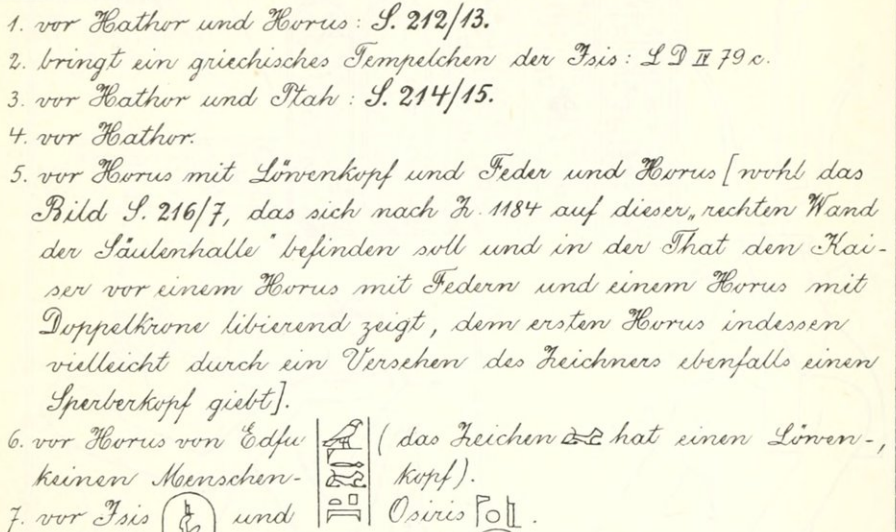 1. vor Hathor und Horus: S. 212/13.
2. bringt ein griechisches Tempelchen der Isis: L D IV 79 c.
3. vor Hathor und Ptah: S. 214/15.
4. vor Hathor.
5. vor Horus mit Löwenkopf und Feder und Horus [wohl das
Bild S. 216/7, das sich nach Z. 1184 auf dieser „rechten Wand
der Säulenhalle“ befinden soll und in der That den Kai-
ser vor einem Horus mit Federn und einem Horus mit
Doppelkrone libierend zeigt, dem ersten Horus indessen
vielleicht durch ein Versehen des Zeichners ebenfalls einen
Sperberkopf giebt].
6. vor Horus von Edfu (das Zeichen hat einen Löwen-,
keinen Menschen- kopf).
7. vor Isis und Osiris .